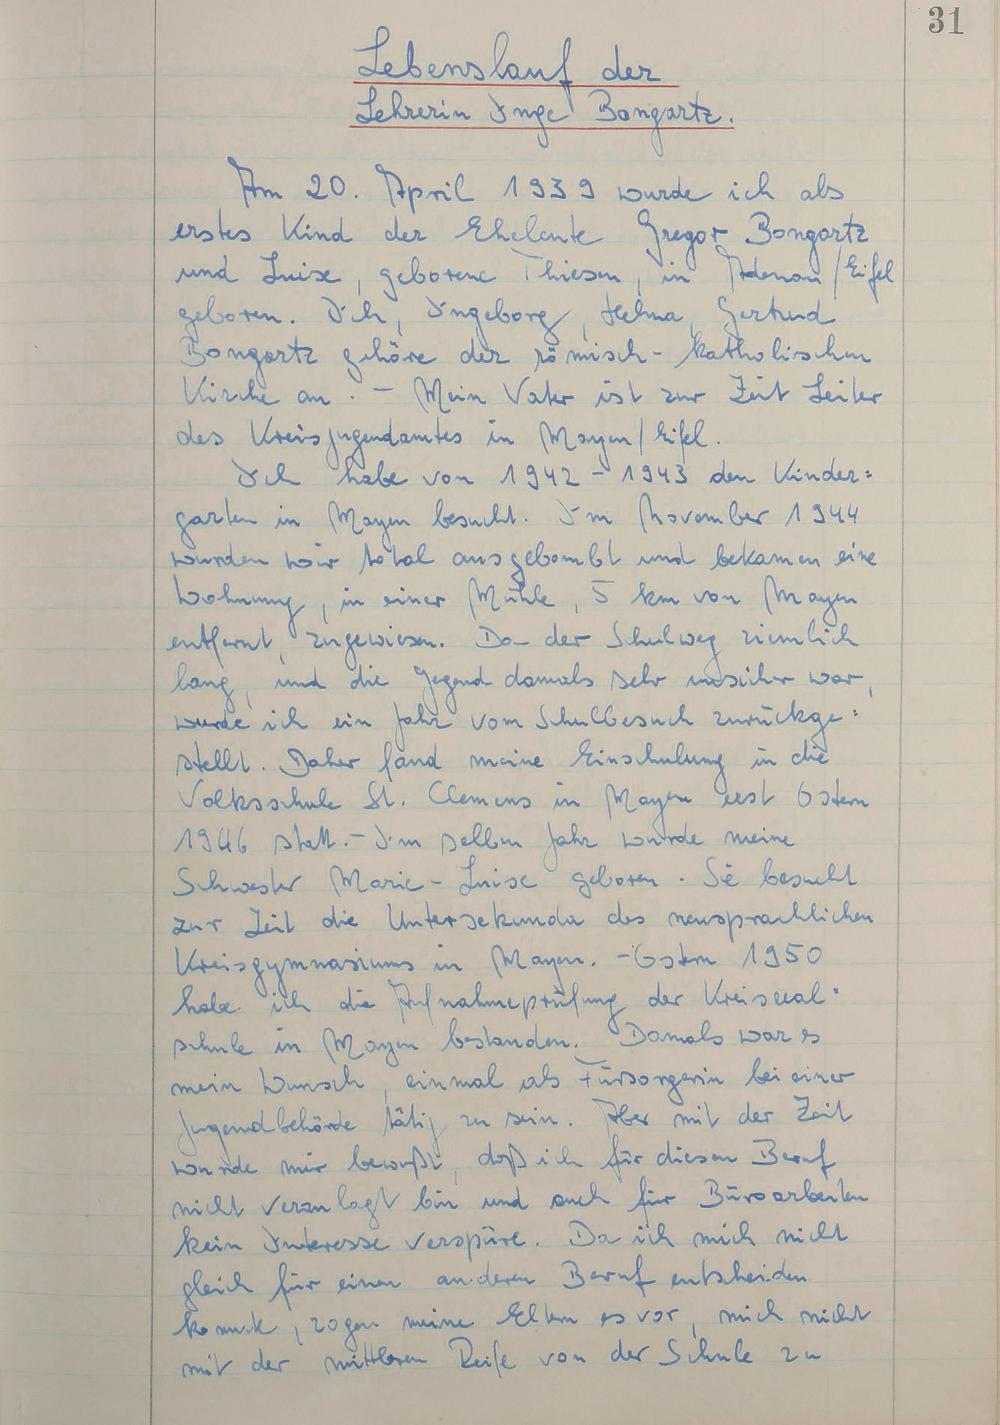 31
Lebenslauf der
Lehrerin Inge Bongartz.
Am 20. April 1939 wurde ich als
erstes Kind der Eheleute Gregor Bongartz
und Luise, geborene Thiesen, in Adenau/Eifel
geboren. Ich, Ingeborg, Helma, Gertrud
Bongartz gehöre der römisch-katholischen
Kirche an. – Mein Vater ist zur Zeit Leiter
des Kreisjugendamtes in Mayen/Eifel.
Ich habe von 1942 – 1943 den Kinder=
garten in Mayen besucht. Im November 1944
wurden wir total ausgebombt und bekamen eine
Wohnung, in einer Mühle, 5 km von Mayen
entfernt, zugewiesen. Da der Schulweg ziemlich
lang, und die Gegend damals sehr unsicher war,
wurde ich ein Jahr vom Schulbesuch zurückge=
stellt. Daher fand meine Einschulung in die
Volksschule St. Clemens in Mayen erst Ostern
1946 statt. – Im selben Jahr wurde meine
Schwester Marie-Luise geboren. Sie besucht
zur Zeit die Untersekunda des neusprachlichen
Kreisgymnasiums in Mayen. – Ostern 1950
habe ich die Aufnahmeprüfung der Kreisreal=
schule in Mayen bestanden. Damals war es
mein Wunsch, einmal als Fürsorgerin bei einer
Jugendbehörde tätig zu sein. Aber mit der Zeit
wurde mir bewußt, daß ich für diesen Beruf
nicht veranlagt bin und auch für Büroarbeiten
kein Interesse verspüre. Da ich mich nicht
gleich für einen anderen Beruf entscheiden
konnte, zogen meine Eltern es vor, mich nicht
mit der mittleren Reife von der Schule zu